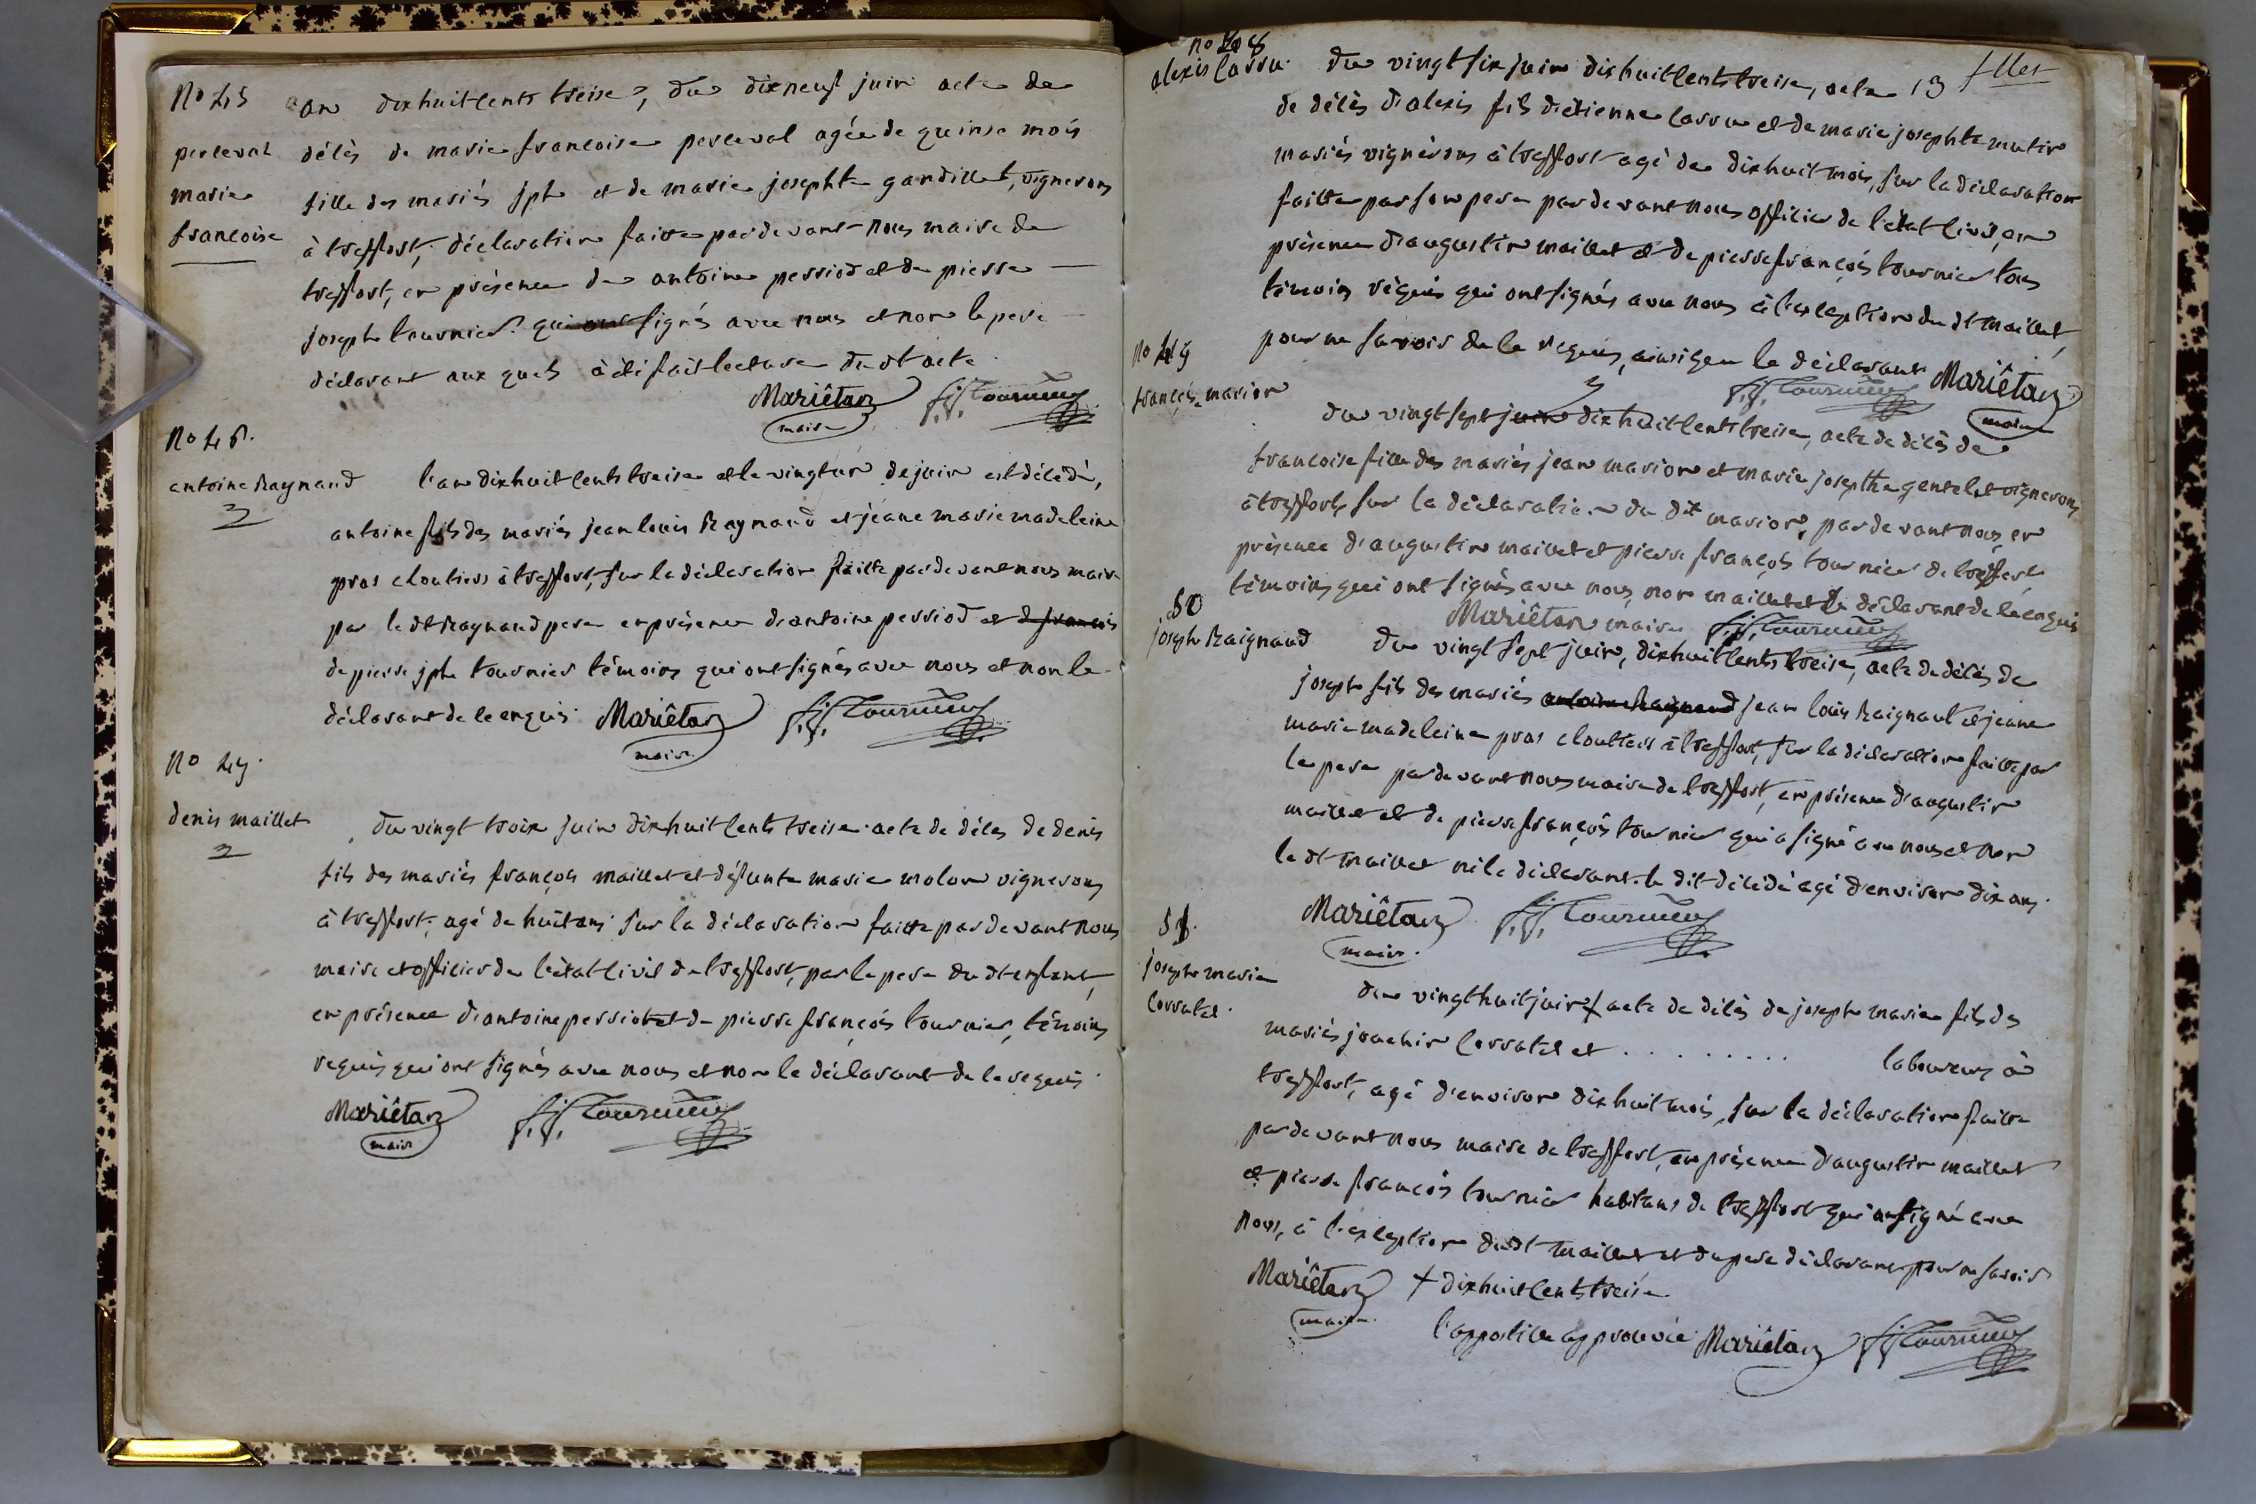 No 45
perceval
marie
francoise
an dixhuit cents treise, du dixneuf juin acte de
décès de marie francoise perceval agée de quinse mois
fille des mariés jph et de marie josephte gandillet, vignerons
à treffort, déclaration faitte par devant nous maire de
treffort, en présence de antoine perriod et de pierre
joseph tournier qui ont signés avec nous et non le pere
déclarant aux quels à été fait lecture du dt acte
Mariêtan
maire
No 46.
antoine Raynaud
l'an dixhuit cents treise et le vingt un de juin est décédé,
antoine fils des mariés jean louis Raynaud et jeane marie madeleine
pras cloutiers à treffort, sur la déclaration faitte par devant nous maire
par le dt Raynaud pere en présence d'antoine perriod et d francois
de pierre jph tournier témoins qui ont signés avec nous et non le
déclarant de le enquis. Mariêtan f.f. Tournier
maire
No 47.
denis maillet
du vingt trois juin dixhuit cents treise acte de décès de denis
fils des mariés françois maillet et défunte marie molon vignerons
à treffort, agé de huit ans sur la déclaration faitte par devant nous
maire et officier de l'état civil de treffort, par le pere du dt enfant,
en présence d'antoine perriot et de pierre françois tournier, témoins
requis qui ont signés avec nous et non le déclarant de le requis.
Mariêtan f.f. Tournier
maire
no 48
alexis Cassu.
du vingt six juin dixhuit cents treise, acte 13 fllet
de décès d'alexis fils d'etienne Cassu et de marie josephte mutin
mariés vignerons à treffort agé de dixhuit mois, sur la déclaration
faitte par son pere par devant nous officier de l'état civil, en
présence d'augustin maillet et de pierre françois tournier tous
témoins réquis qui ont signés avec nous à l'exception du dt maillet,
pour ne savoir de le requis, ainsi que le déclarant Mariêtan
f.f. Tournier maire
no 49
françois marion
du vingt sept juin dixhuit cents treise, acte de décès de
francoise fille des mariés jean marion et marie josepthe gentelet vignerons
à treffort, sur la déclaration du dit marion, par devant nous, en
présence d'augustin maillet et pierre françois tournier de treffort
témoins qui ont signés avec nous, non maillet et le déclarant de le enquis
Mariêtan maire f.f. Tournier
50
joseph Raignaud
du vingt sept juin, dixhuit cents treise, acte de décès de
joseph fils des mariés antoine Raynaud jean louis Raignaut et jeane
marie madeleine pras cloutiers à treffort, sur la déclaration faitte par
le pere par devant nous maire de treffort, en présence d'augustin
maillet et de pierre françois tournier qui a signé avec nous et non
le dt maillet ni le déclarant. le dit décédé agé d'environ dix ans.
Mariêtan f.f. Tournier
maire.
51.
joseph marie
Corratel.
du vingt huit juin + acte de décès de joseph marie fils des
mariés joachin Corratel et . . . . . . . . . laboureurs à
treffort, agé d'environ dixhuit mois, sur la déclaration faitte
par devant nous maire de treffort, en présence d'augustin maillet
et pierre françois tournier habitans de treffort qui a signé avec
nous, à l'exception du dt maillet et du pere déclarant pour ne savoir
Mariêtan + dixhuit cents treise
maire.
l'appostille approuvée Mariêtan f.f. Tournier